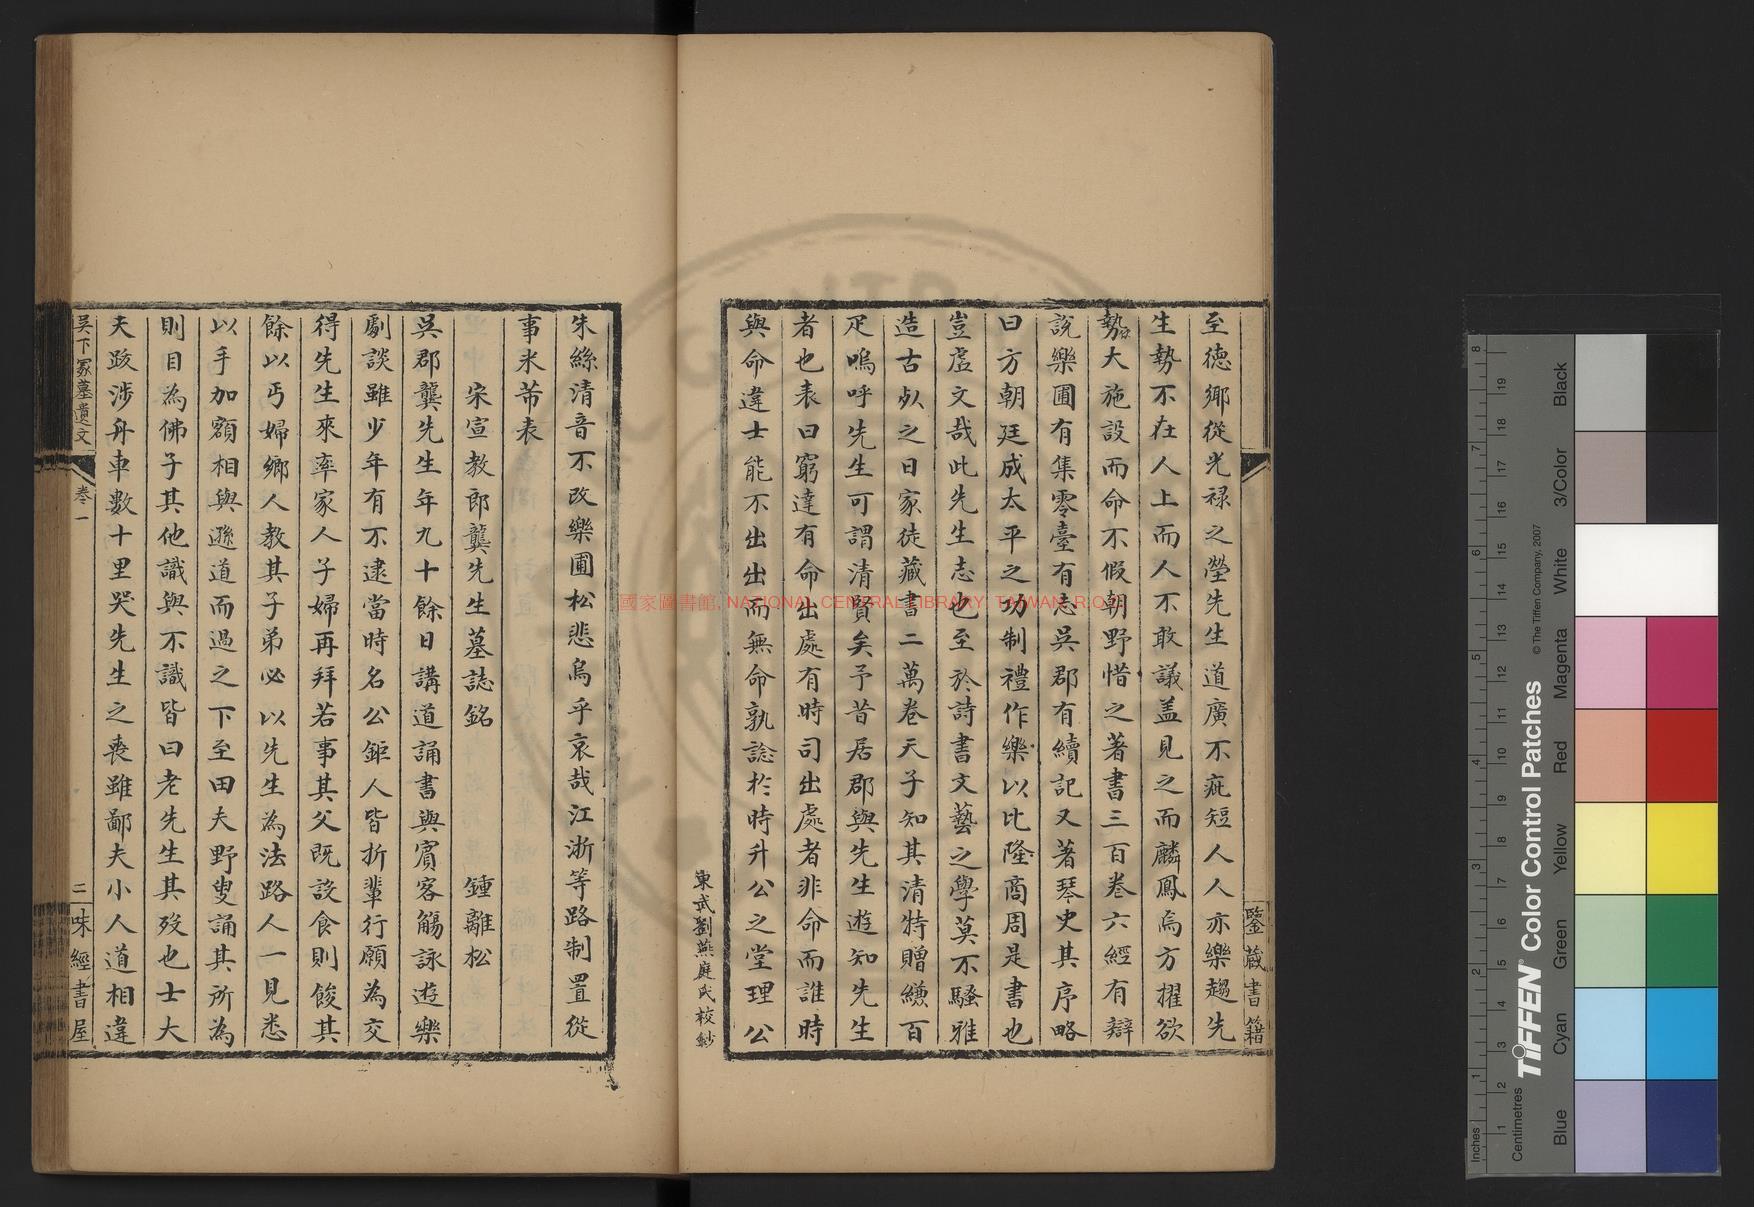 至德鄉從光禄之瑩先生道廣不疵短人人亦樂趨先
生勢不在人上而人不敢議盖見之而麟鳳焉方擢欲
勢大施設而命不假朝野惜之著書三百卷六經有辯
說樂圃有集零臺有志吳郡有續記又著琴史其序略
曰方朝廷成太平之功制禮作樂以比隆商周是書也
豈虛文哉此先生志也至於詩書文藝之學莫不騷雅
造古歿之日家徒藏書二萬卷天子知其清特贈縑百
疋嗚呼先生可謂清賢矣予昔居郡與先生遊知先生
者也表曰窮達有命出處有時司出處者非命而誰時
與命違士能不出出而無命孰諗於時升公之堂理公
鑒藏書籍
東武劉燕庭氏校鈔
朱絲清音不改樂圃松悲烏乎哀哉江浙等路制置從
事米芾表
宋宣教郎龔先生墓誌銘 鍾離松
吳郡龔先生年九十餘日講道誦書與賓客觴詠遊樂
劇談雖少年有不逮當時名公鉅人皆折輩行願為交
得先生來率家人子婦再拜若事其父既設食則餕其
餘以丐婦鄉人教其子弟必以先生為法路人一見悉
以手加額相與遜道而過之下至田夫野叟誦其所為
則目為佛子其他識與不識皆曰老先生其歿也士大
夫跋涉舟車數十里哭先生之喪雖鄙夫小人道相違
吳下冢墓遺文 卷一 二 味經書屋
國家圖書館, NATIONAL CENTRAL LIBRARY, TAIWAN, R.O.C.
Inches
Centimetres
TIFFEN® Color Control Patches
© The Tiffen Company, 2007
Blue Cyan Green Yellow Red Magenta White 3/Color Black